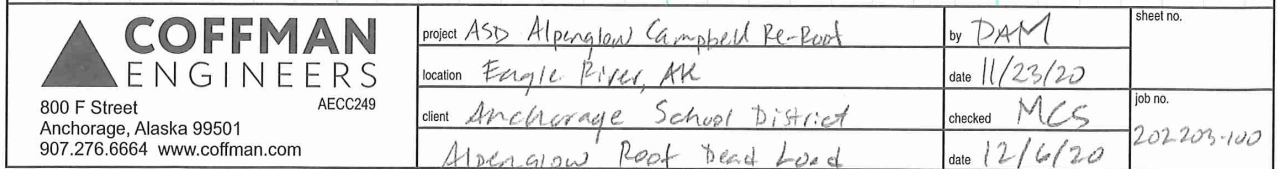 COFFMAN
ENGINEERS
800 F Street AECC249
Anchorage, Alaska 99501
907.276.6664 www.coffman.com
project ASD Alpenglow Campbell Re-Roof
location Eagle River, AK
client Anchorage School District
Alpenglow Roof Dead Load
by DAM
date 11/23/20
checked MCS
date 12/6/20
sheet no.
job no.
202203-100